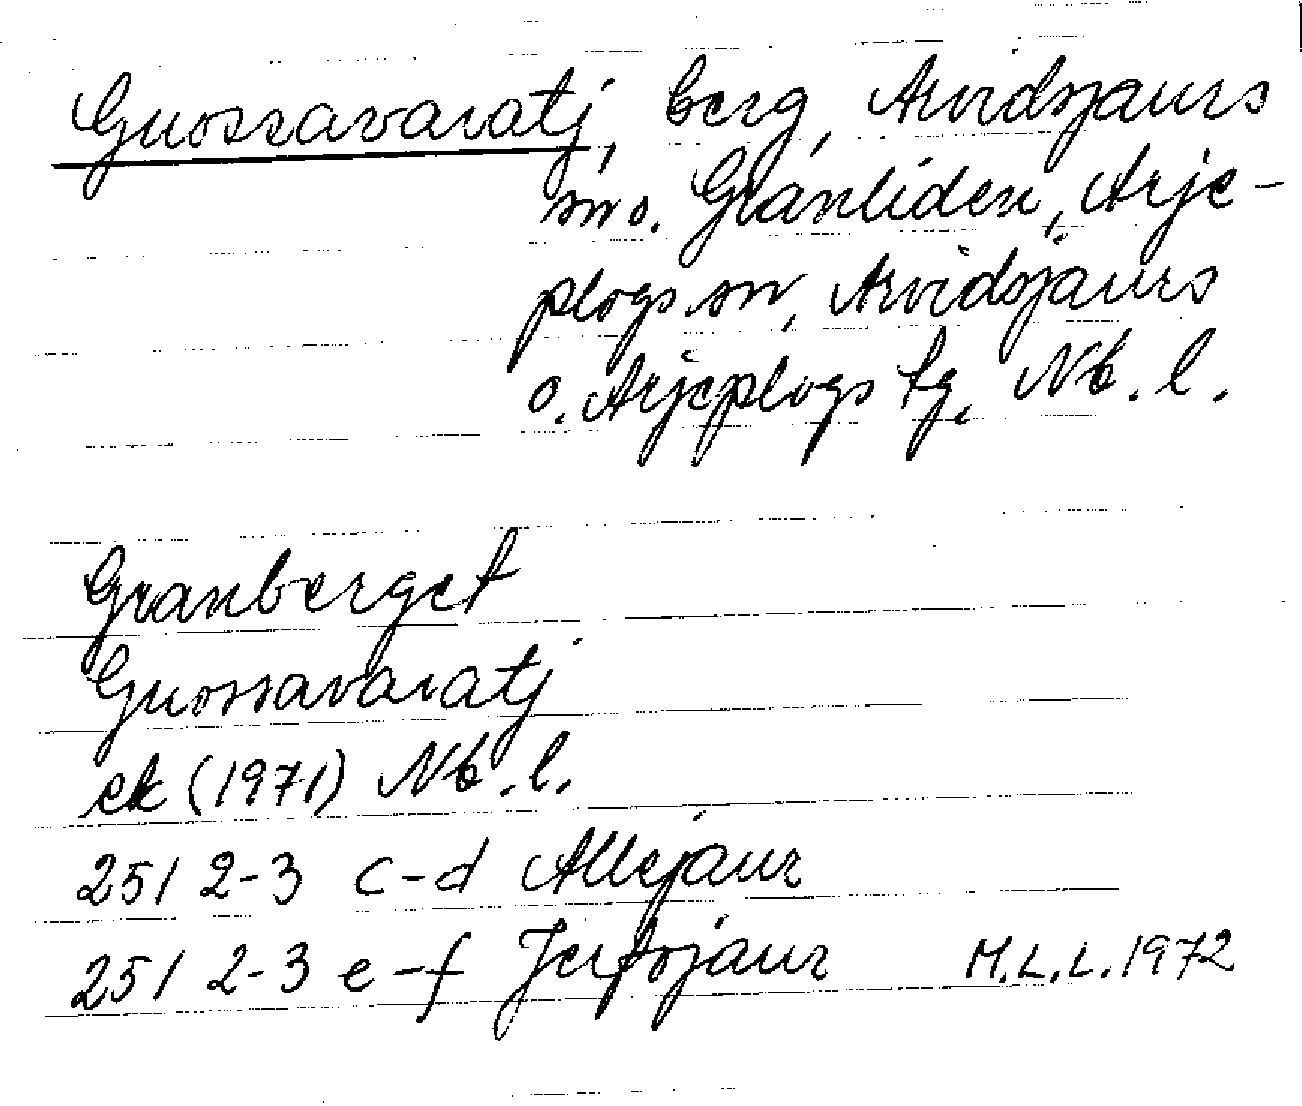 Guossavaratj, berg, Arvidsjaurs
sn o. Granliden, Arje-
plogs sn, Arvidsjaurs
o. Arjeplogs tg, Nb. l.
Granberget
Guossavaratj
ek (1971) Nb. l.
251 2-3 c-d Allejaur
251 2-3 e-f Jerfojaur M.L.L. 1972